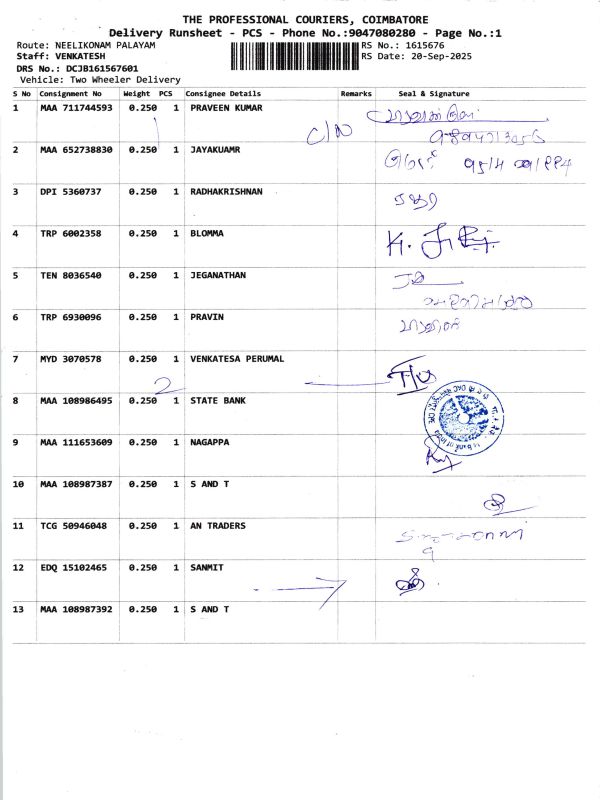 THE PROFESSIONAL COURIERS, COIMBATORE
Delivery Runsheet - PCS - Phone No.:9047080280 - Page No.:1
Route: NEELIKONAM PALAYAM RS No.: 1615676
Staff: VENKATESH RS Date: 20-Sep-2025
DRS No.: DCJB161567601
Vehicle: Two Wheeler Delivery
S No Consignment No Weight PCS Consignee Details Remarks Seal & Signature
1 MAA 711744593 0.250 1 PRAVEEN KUMAR
C/N
2 MAA 652738830 0.250 1 JAYAKUAMR
3 DPI 5360737 0.250 1 RADHAKRISHNAN
4 TRP 6002358 0.250 1 BLOMMA
5 TEN 8036540 0.250 1 JEGANATHAN
6 TRP 6930096 0.250 1 PRAVIN
7 MYD 3070578 0.250 1 VENKATESA PERUMAL
2
8 MAA 108986495 0.250 1 STATE BANK
9 MAA 111653609 0.250 1 NAGAPPA
10 MAA 108987387 0.250 1 S AND T
11 TCG 50946048 0.250 1 AN TRADERS
12 EDQ 15102465 0.250 1 SANMIT
13 MAA 108987392 0.250 1 S AND T